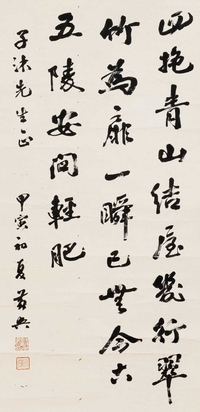 四抱青山结屋几行翠
竹為扉一瞬已无今古
五陵安问轻肥
子沫先生正
甲寅初夏黄兴